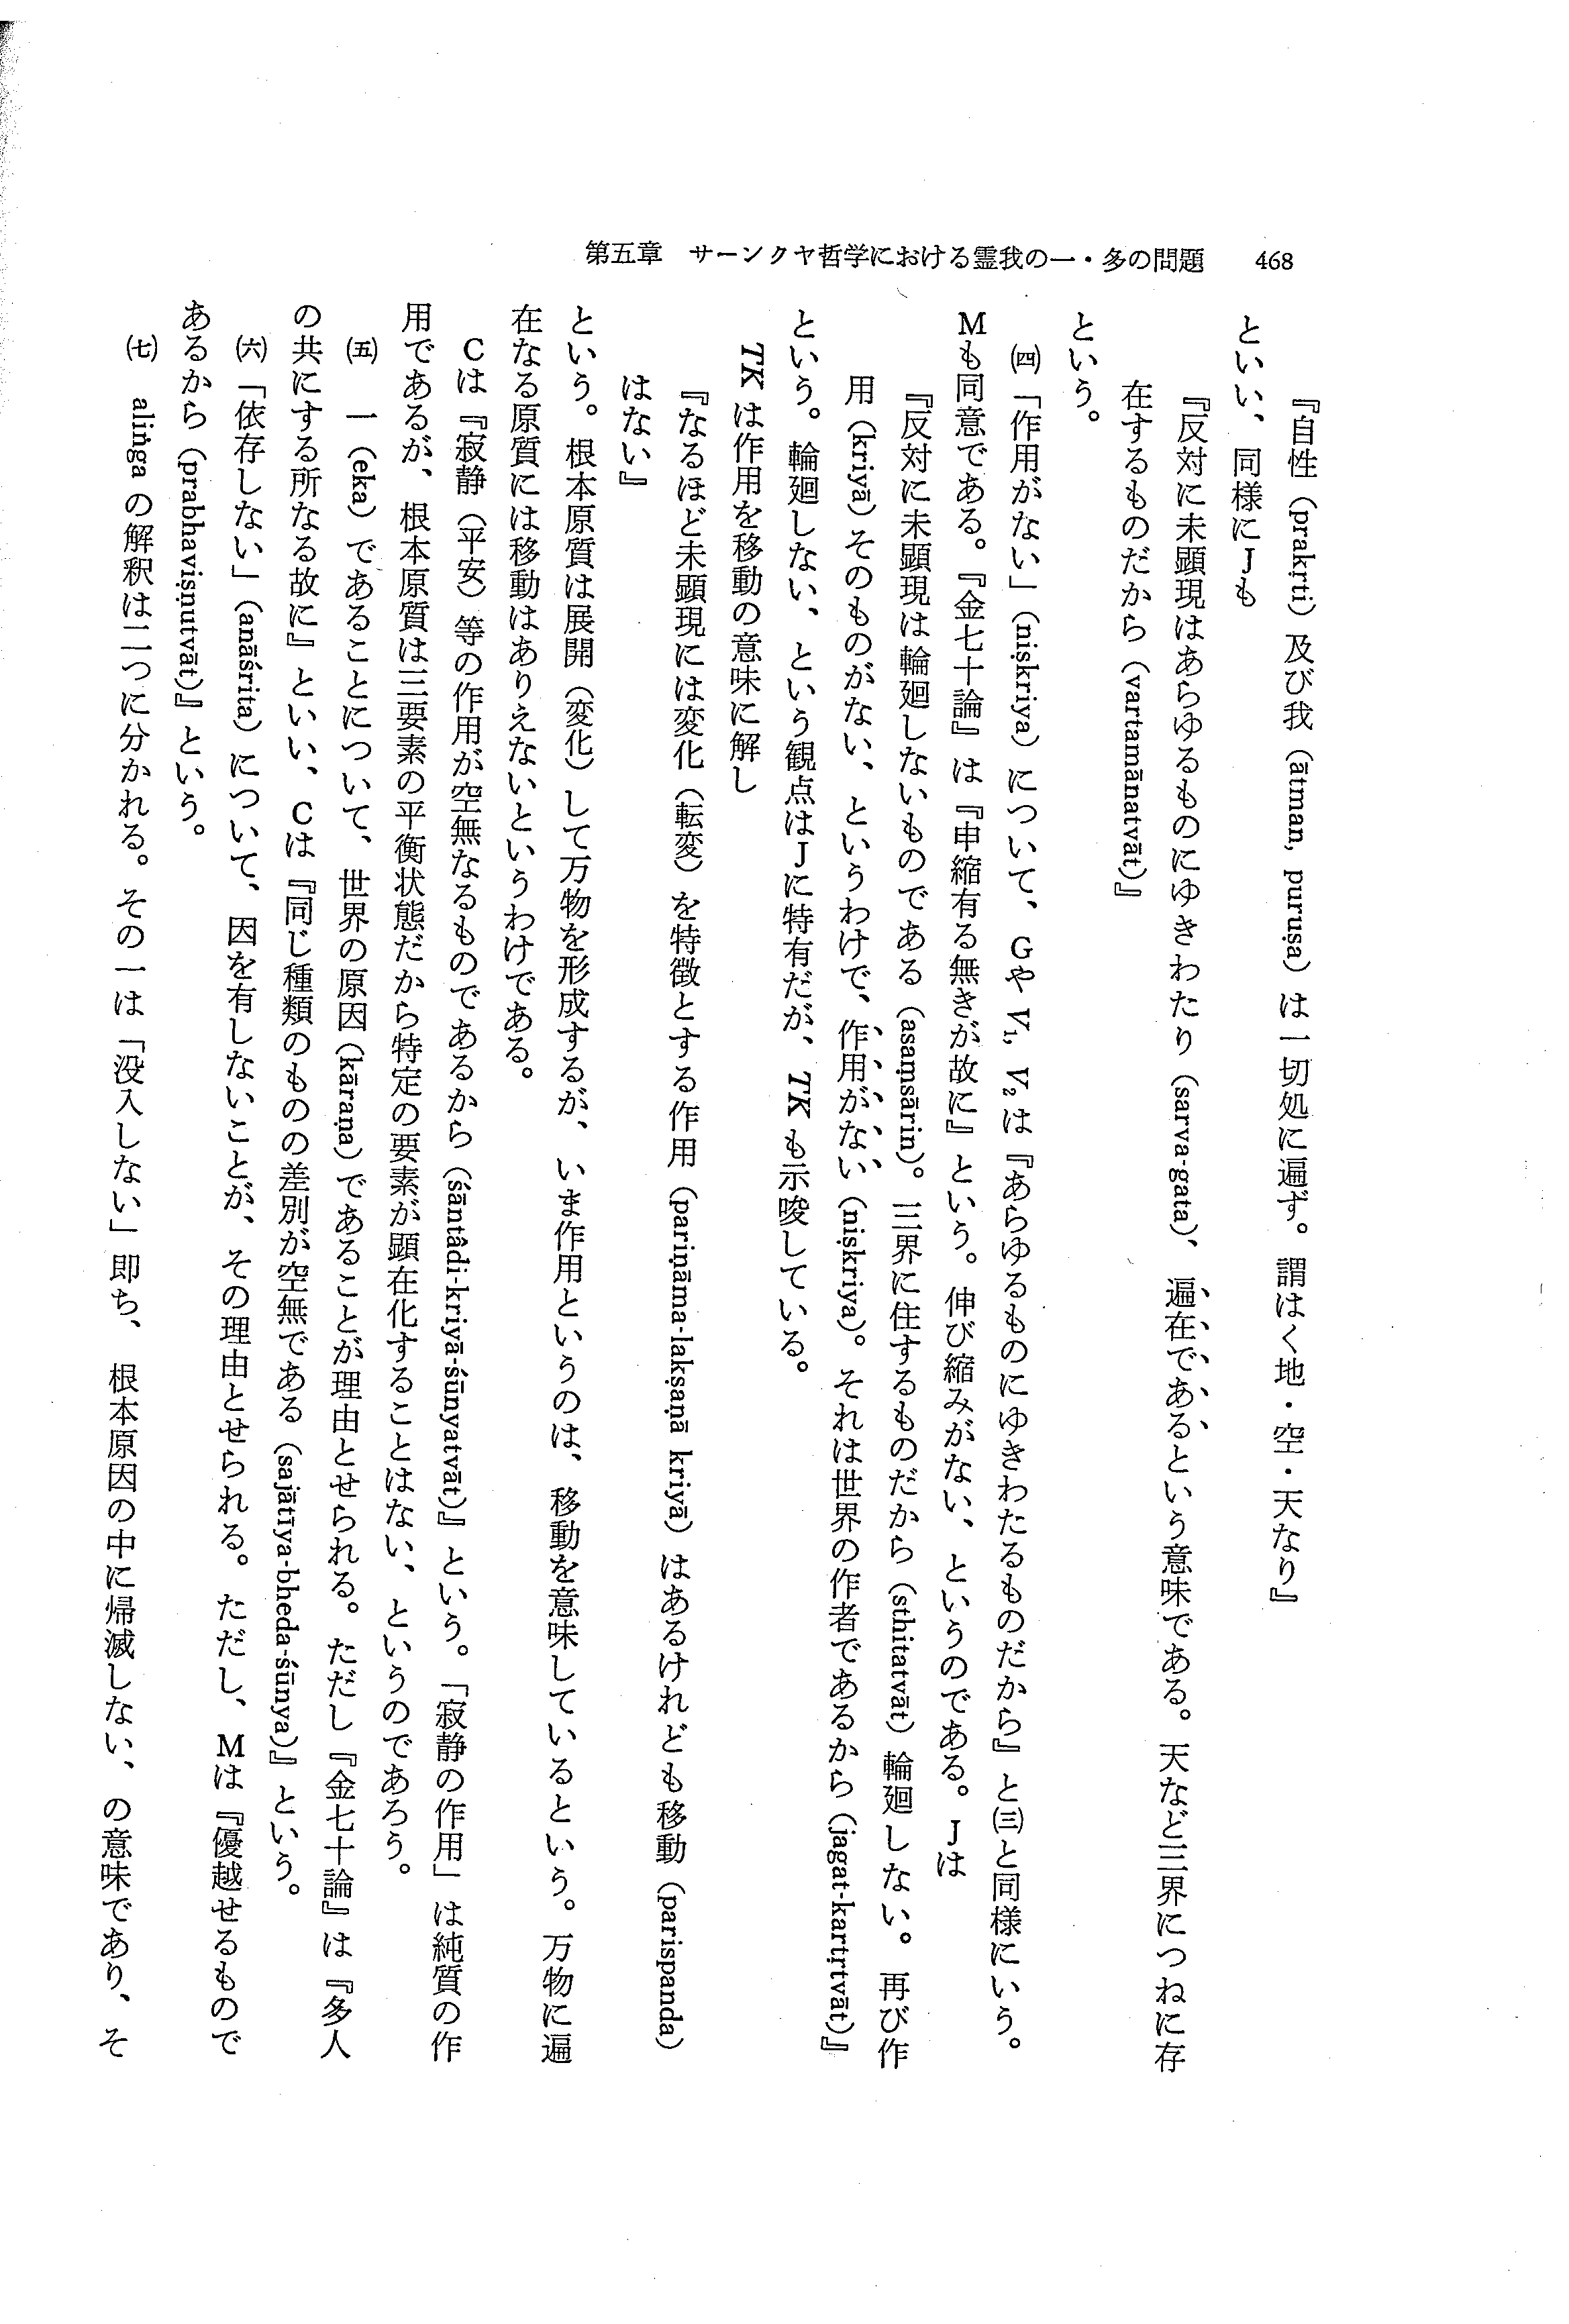 第五章　サーンクヤ哲学における霊我の一・多の問題　468
『自性（prakṛti）及び我（ātman, puruṣa）は一切処に遍ず。謂はく地・空・天なり』
といい、同様にJも
『反対に未顕現はあらゆるものにゆきわたり（sarva-gata）、遍在であるという意味である。天など三界につねに存
在するものだから（vartamānatvāt）』
という。
㈣「作用がない」（niṣkriya）について、GやV₁, V₂は『あらゆるものにゆきわたるものだから』と㈢と同様にいう。
Mも同意である。『金七十論』は『申縮有る無きが故に』という。伸び縮みがない、というのである。Jは
『反対に未顕現は輪廻しないものである（asaṃsārin）。三界に住するものだから（sthitatvāt）輪廻しない。再び作
用（kriyā）そのものがない、というわけで、作用がない（niṣkriya）。それは世界の作者であるから（jagat-kartṛtvāt）』
という。輪廻しない、という観点はJに特有だが、TKも示唆している。
TKは作用を移動の意味に解し
『なるほど未顕現には変化（転変）を特徴とする作用（pariṇāma-lakṣaṇā kriyā）はあるけれども移動（parispanda）
はない』
という。根本原質は展開（変化）して万物を形成するが、いま作用というのは、移動を意味しているという。万物に遍
在なる原質には移動はありえないというわけである。
Cは『寂静（平安）等の作用が空無なるものであるから（śāntâdi-kriyā-śūnyatvāt）』という。「寂静の作用」は純質の作
用であるが、根本原質は三要素の平衡状態だから特定の要素が顕在化することはない、というのであろう。
㈤　一（eka）であることについて、世界の原因（kāraṇa）であることが理由とせられる。ただし『金七十論』は『多人
の共にする所なる故に』といい、Cは『同じ種類のものの差別が空無である（sajātīya-bheda-śūnya）』という。
㈥「依存しない」（anāśrita）について、因を有しないことが、その理由とせられる。ただし、Mは『優越せるもので
あるから（prabhaviṣṇutvāt）』という。
㈦　aliṅgaの解釈は二つに分かれる。その一は「没入しない」即ち、根本原因の中に帰滅しない、の意味であり、そ